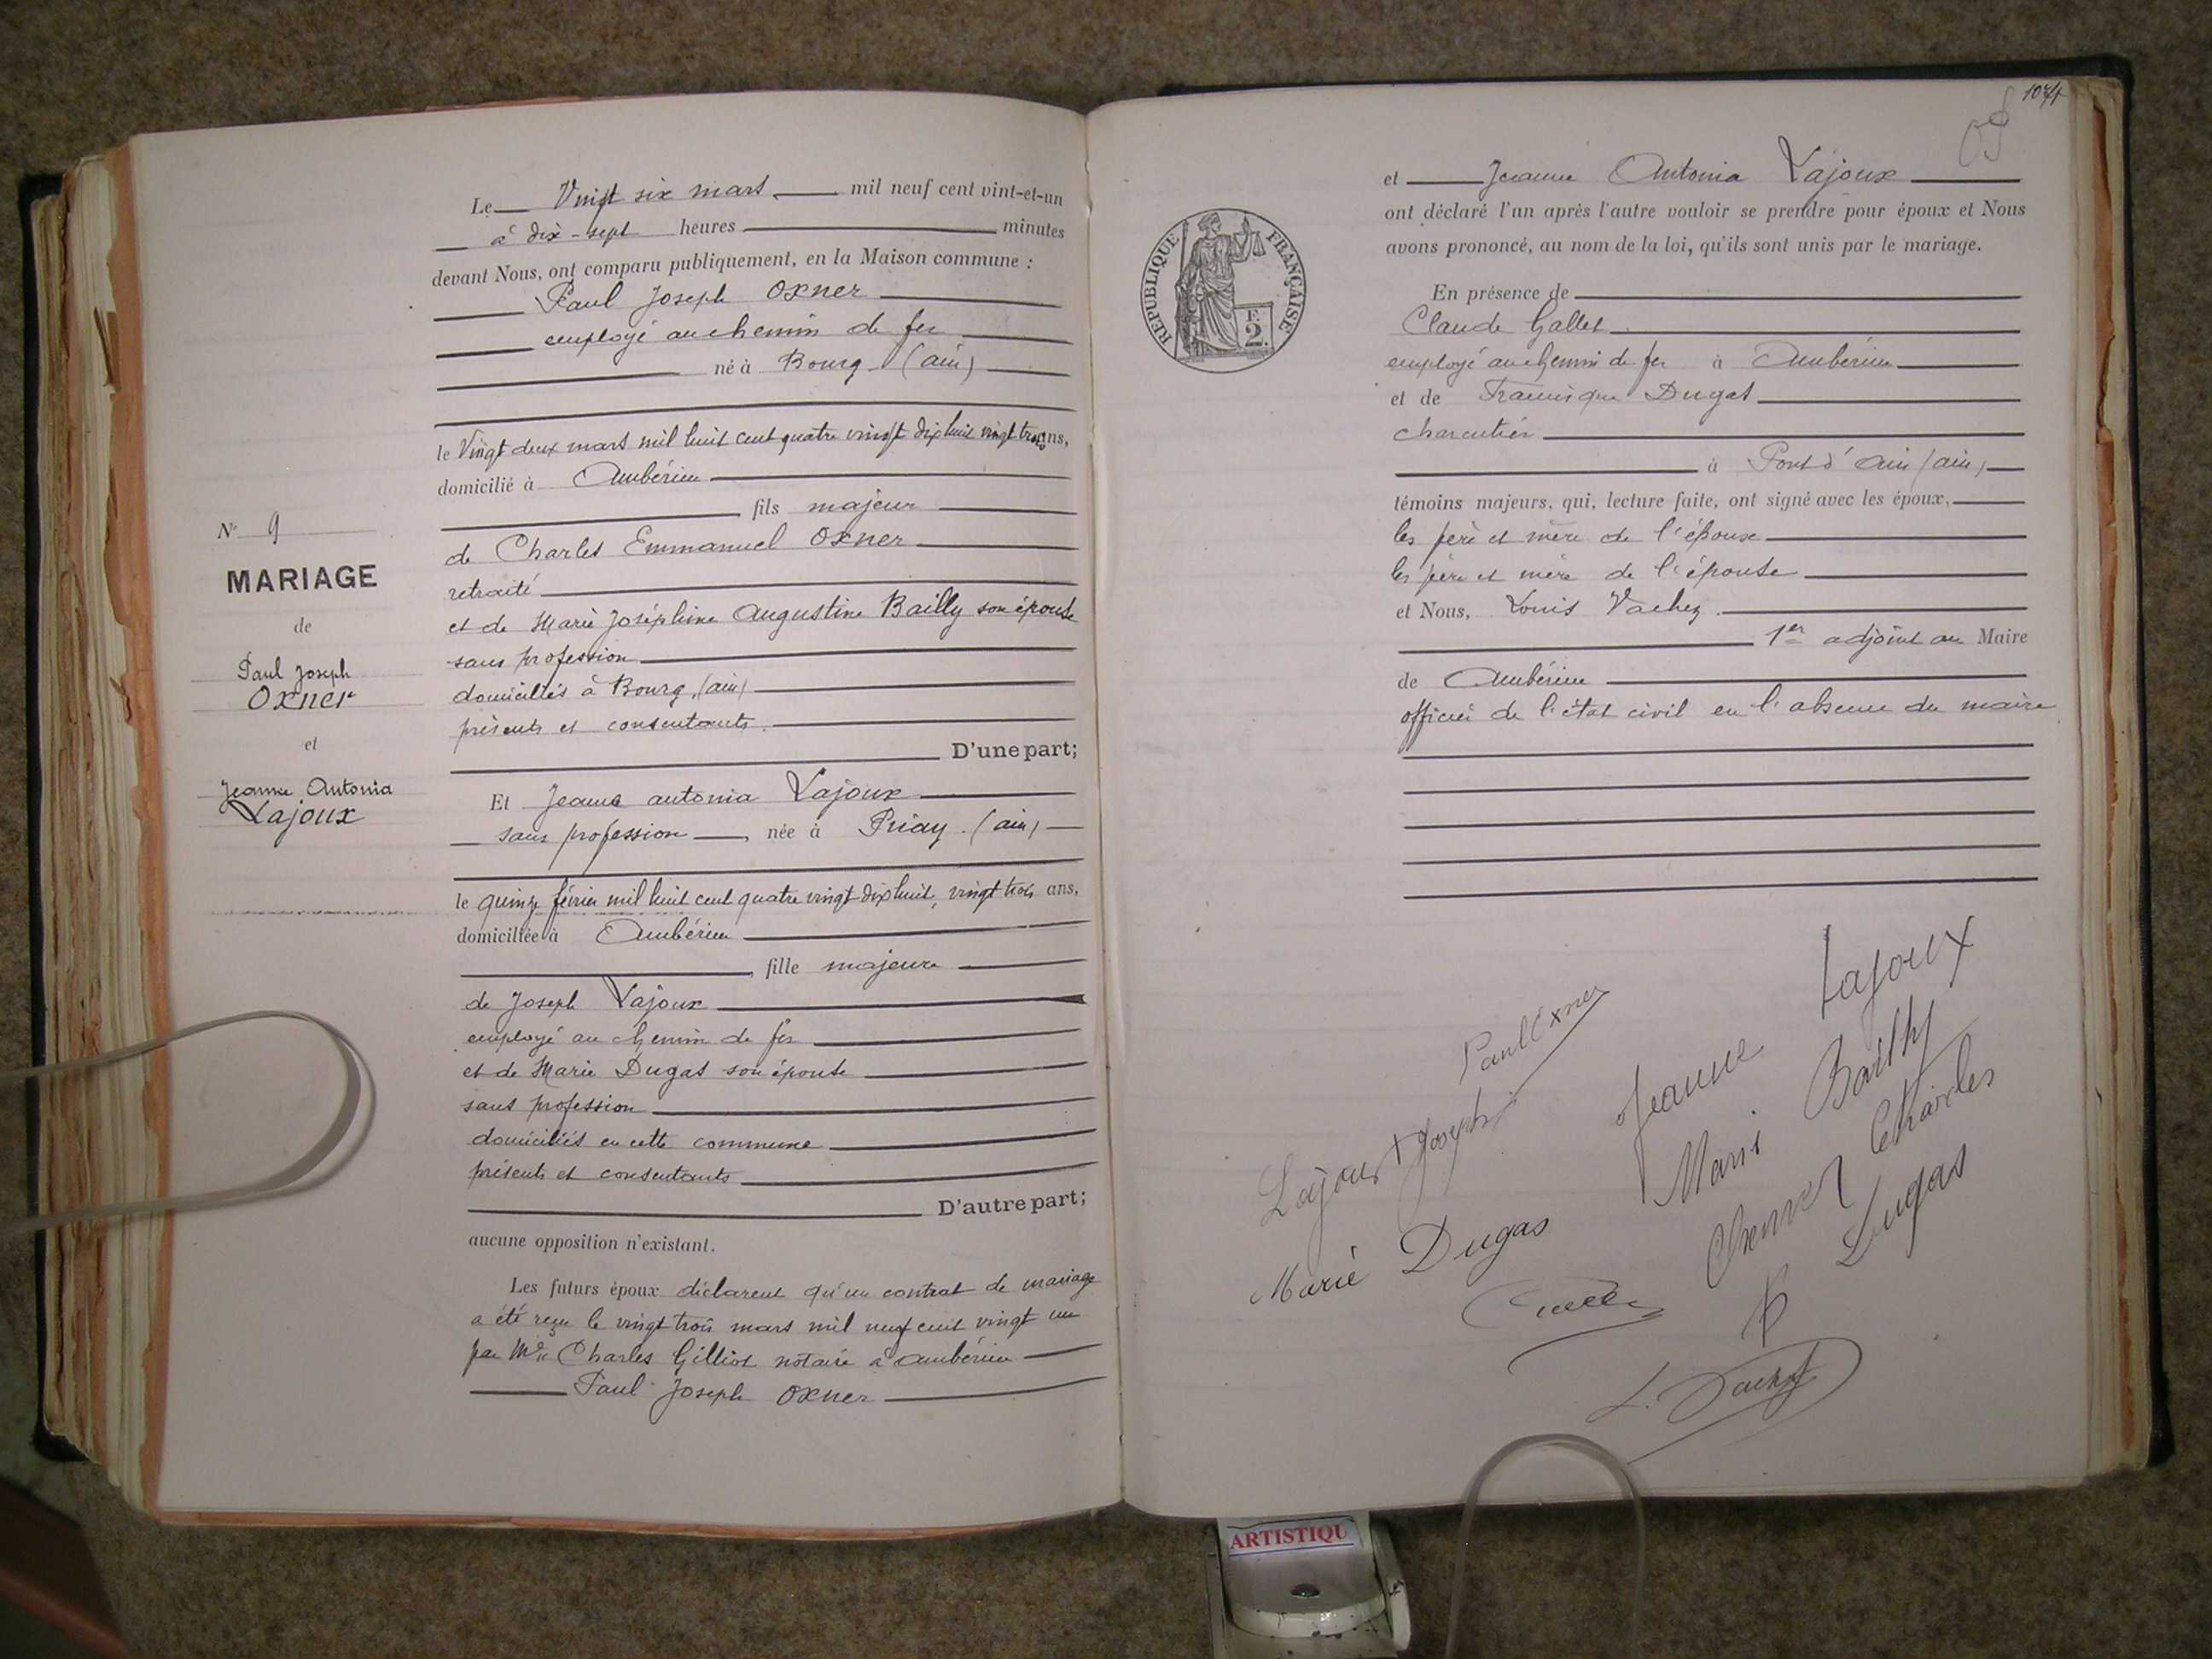 Le Vingt six mars mil neuf cent vint-et-un
à dix-sept heures minutes
devant Nous, ont comparu publiquement, en la Maison commune :
Paul Joseph Oxner
employé au chemin de fer
né à Bourg (ain)
le Vingt deux mars mil huit cent quatre vingt dix huit vingt trois ans,
domicilié à Ambérieu
fils majeur
de Charles Emmanuel Oxner
retraité
et de Marie Joséphine Augustine Bailly son épouse
sans profession
domiciliés à Bourg, (ain)
présents et consentants.
D'une part;
Et Jeanne antonia Lajoux
sans profession, née à Priay. (ain)
le quinze février mil huit cent quatre vingt dix huit, vingt trois ans,
domiciliée à Ambérieu
, fille majeure
de Joseph Lajoux
employé au chemin de fer
et de Marie Dugas son épouse
sans profession
domiciliés en cette commune
présents et consentants
D'autre part;
aucune opposition n'existant.
Les futurs époux déclarent qu'un contrat de mariage
a été reçu le vingt trois mars mil neuf cent vingt un
par Me Charles Gilliot notaire à ambérieu
Paul Joseph Oxner
N° 9
MARIAGE
de
Paul Joseph
Oxner
et
Jeanne Antonia
Lajoux
1074
et Jeanne Antonia Lajoux
ont déclaré l'un après l'autre vouloir se prendre pour époux et Nous
avons prononcé, au nom de la loi, qu'ils sont unis par le mariage.
REPUBLIQUE FRANÇAISE
F.
2.
En présence de
Claude Gallet
employé au chemin de fer à Ambérieu
et de Francisque Dugas
charcutier
à Pont d'Ain (ain)
témoins majeurs, qui, lecture faite, ont signé avec les époux,
les père et mère de l'époux
les père et mère de l'épouse
et Nous, Louis Vachez
1er adjoint au Maire
de Ambérieu
officier de l'état civil en l'absence du maire
Lajoux
Paul Oxner
Jeanne
Bailly
Lajoux Joseph
Marie
Charles
Marie Dugas
Oxner
Dugas
L. Vachez
ARTISTIQU